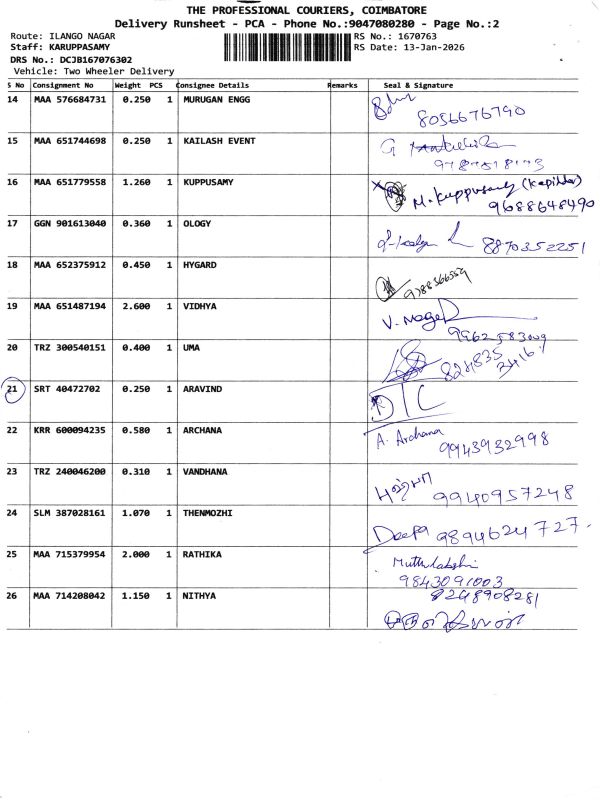 THE PROFESSIONAL COURIERS, COIMBATORE
Delivery Runsheet - PCA - Phone No.:9047080280 - Page No.:2
Route: ILANGO NAGAR RS No.: 1670763
Staff: KARUPPASAMY RS Date: 13-Jan-2026
DRS No.: DCJB167076302
Vehicle: Two Wheeler Delivery
S No Consignment No Weight PCS Consignee Details Remarks Seal & Signature
14 MAA 576684731 0.250 1 MURUGAN ENGG
8056676790
15 MAA 651744698 0.250 1 KAILASH EVENT
G
16 MAA 651779558 1.260 1 KUPPUSAMY
M. Kuppusamy
9688648490
17 GGN 901613040 0.360 1 OLOGY
8870352251
18 MAA 652375912 0.450 1 HYGARD
19 MAA 651487194 2.600 1 VIDHYA
20 TRZ 300540151 0.400 1 UMA
21 SRT 40472702 0.250 1 ARAVIND
DTC
22 KRR 600094235 0.580 1 ARCHANA
A. Archana
9943932998
23 TRZ 240046200 0.310 1 VANDHANA
9940957248
24 SLM 387028161 1.070 1 THENMOZHI
Deepa 9894624727.
25 MAA 715379954 2.000 1 RATHIKA
9843091003
26 MAA 714208042 1.150 1 NITHYA
8248908281